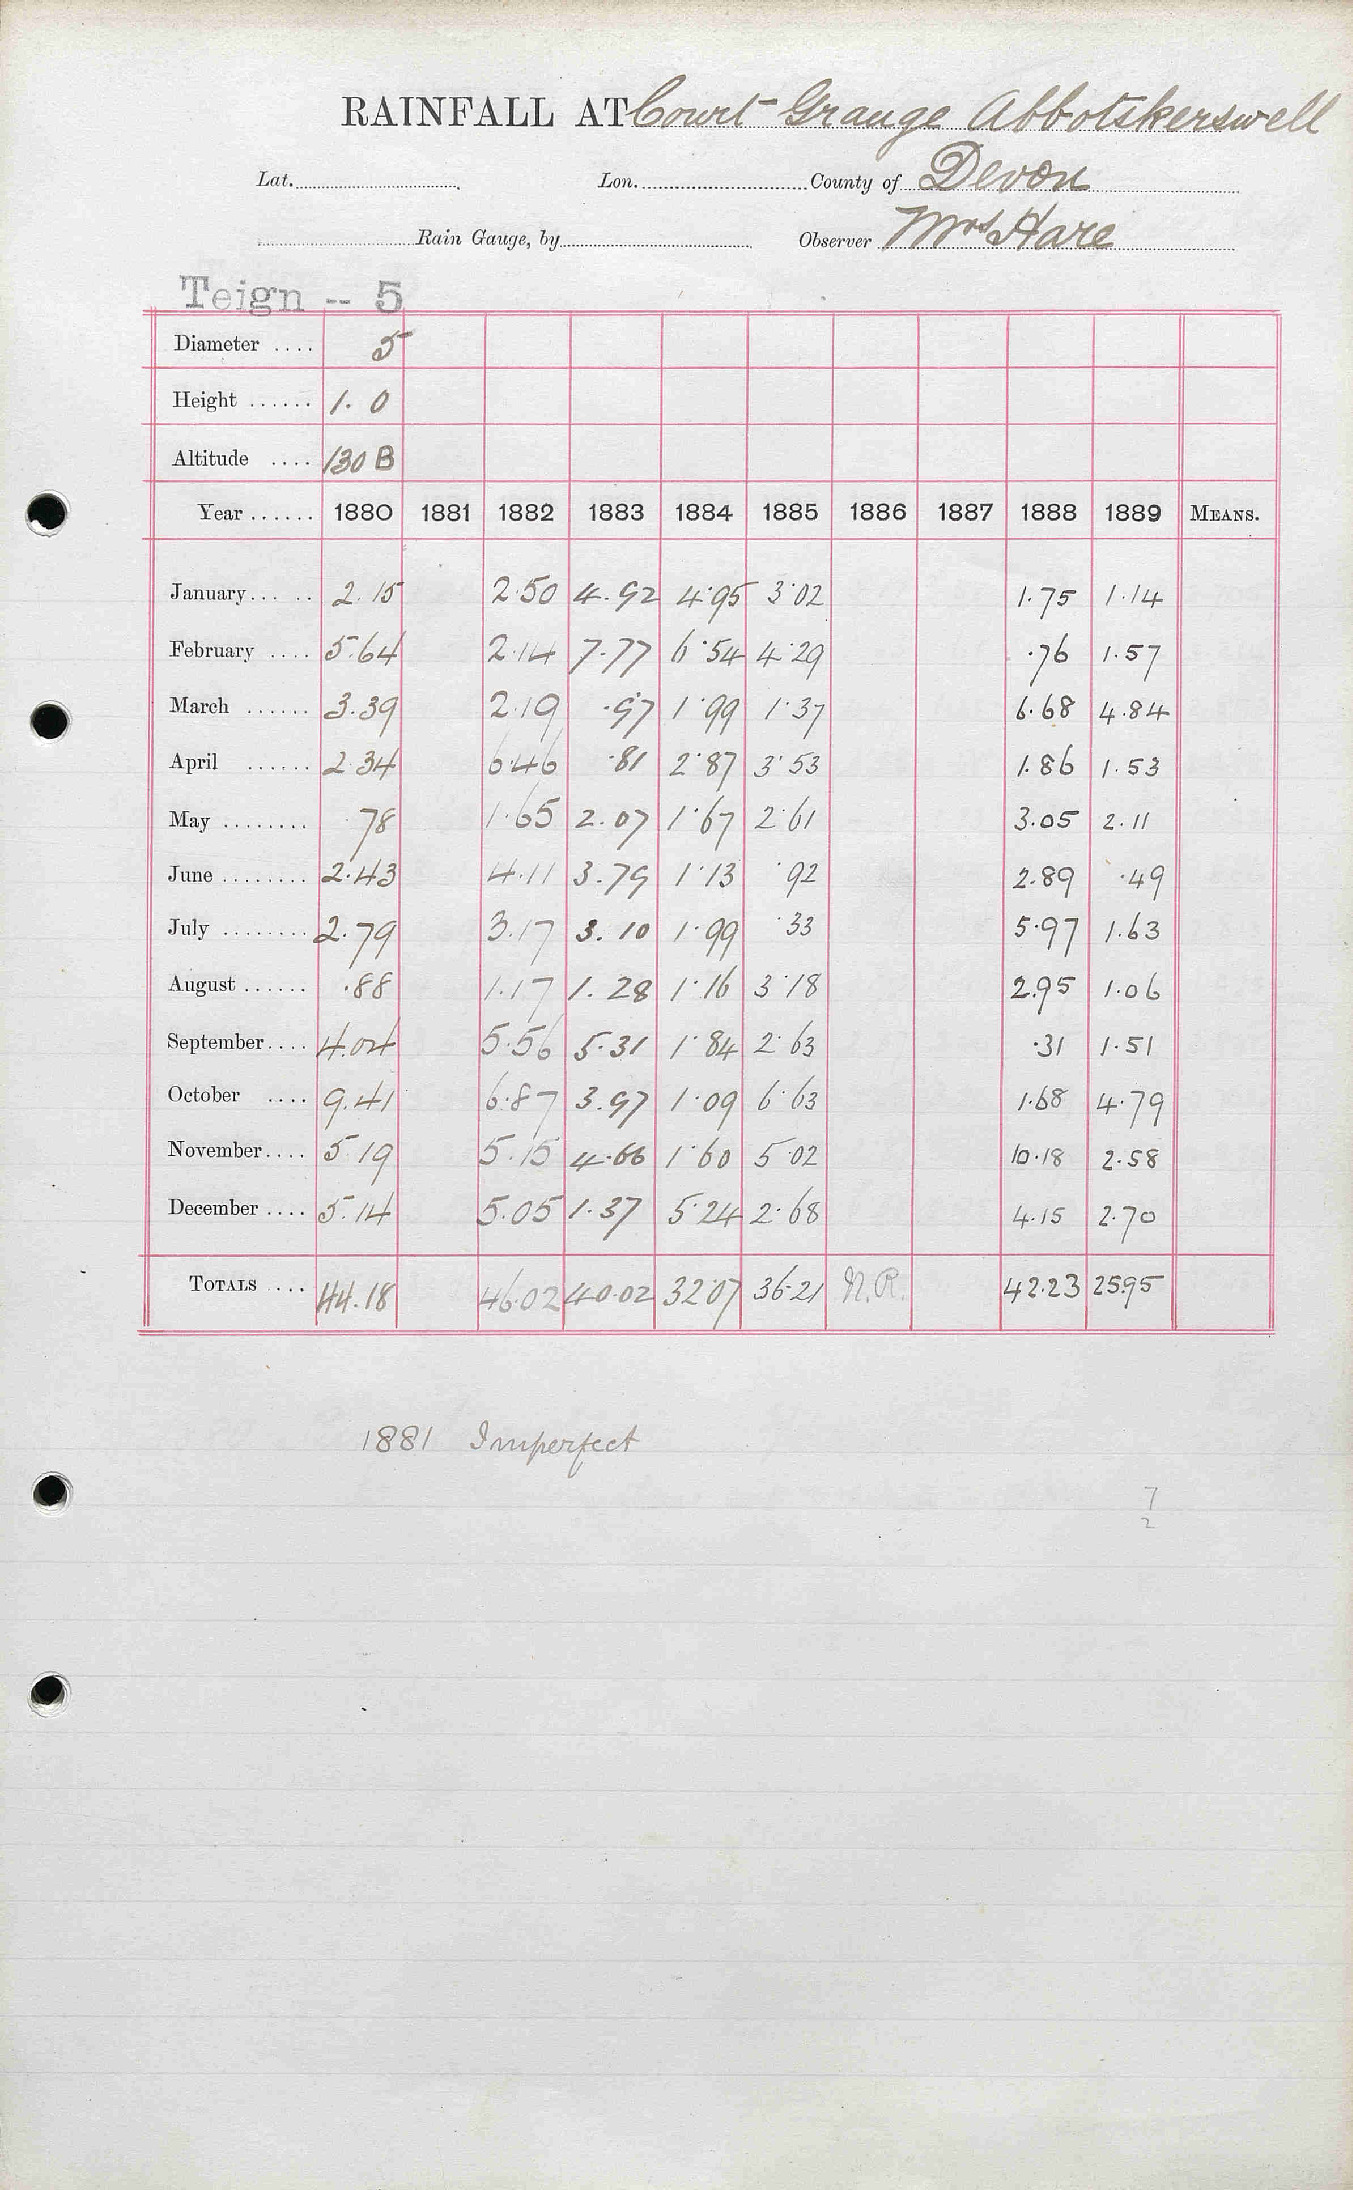 RAINFALL AT Court Grange Abbotskerswell
Lat. Lon. County of Devon
Rain Gauge, by Observer Mrs Hare
Teign -- 5
Diameter .... 5
Height ...... 1. 0
Altitude .... 130 B
Year ...... 1880 1881 1882 1883 1884 1885 1886 1887 1888 1889 MEANS.
January... .. 2.15 2.50 4.92 4.95 3.02 1.75 1.14
February .... 5.64 2.14 7.77 6.54 4.29 .76 1.57
March ...... 3.39 2.19 .97 1.99 1.37 6.68 4.84
April ...... 2.34 6.46 .81 2.87 3.53 1.86 1.53
May ........ .78 1.65 2.07 1.67 2.61 3.05 2.11
June ........ 2.43 4.11 3.79 1.13 .92 2.89 .49
July ........ 2.79 3.17 3.10 1.99 .33 5.97 1.63
August ...... .88 1.17 1.28 1.16 3.18 2.95 1.06
September.... 4.04 5.56 5.31 1.84 2.63 .31 1.51
October .... 9.41 6.87 3.97 1.09 6.63 1.68 4.79
November.... 5.19 5.15 4.66 1.60 5.02 10.18 2.58
December .... 5.14 5.05 1.37 5.24 2.68 4.15 2.70
TOTALS .... 44.18 46.02 40.02 32.07 36.21 N.R. 42.23 25.95
1881 Imperfect
7
2